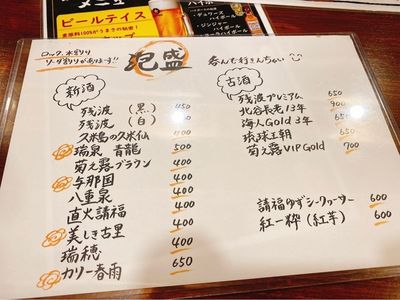 ビールテイス
麦原料100%がうまさの秘密!
ハイボ
・デュワーズ
ハイボール
・ジンジャー
ハイボール
・コーラハイボール
ロック、水割り
ソーダ割りがあります!!
泡盛
呑んで行きんちゃい
新酒
残波 (黒) 450
残波 (白) 400
久米島の久米仙 400
瑞泉 青龍 500
菊之露ブラウン 400
与那国 400
八重泉 400
直火請福 400
美しき古里 400
瑞穂 400
カリー春雨 650
古酒
残波プレミアム 650
北谷長老13年 900
海人Gold 3年 650
琉球王朝 650
菊之露VIP Gold 700
請福ゆずシークヮーサー 600
紅一粋 (紅芋) 600